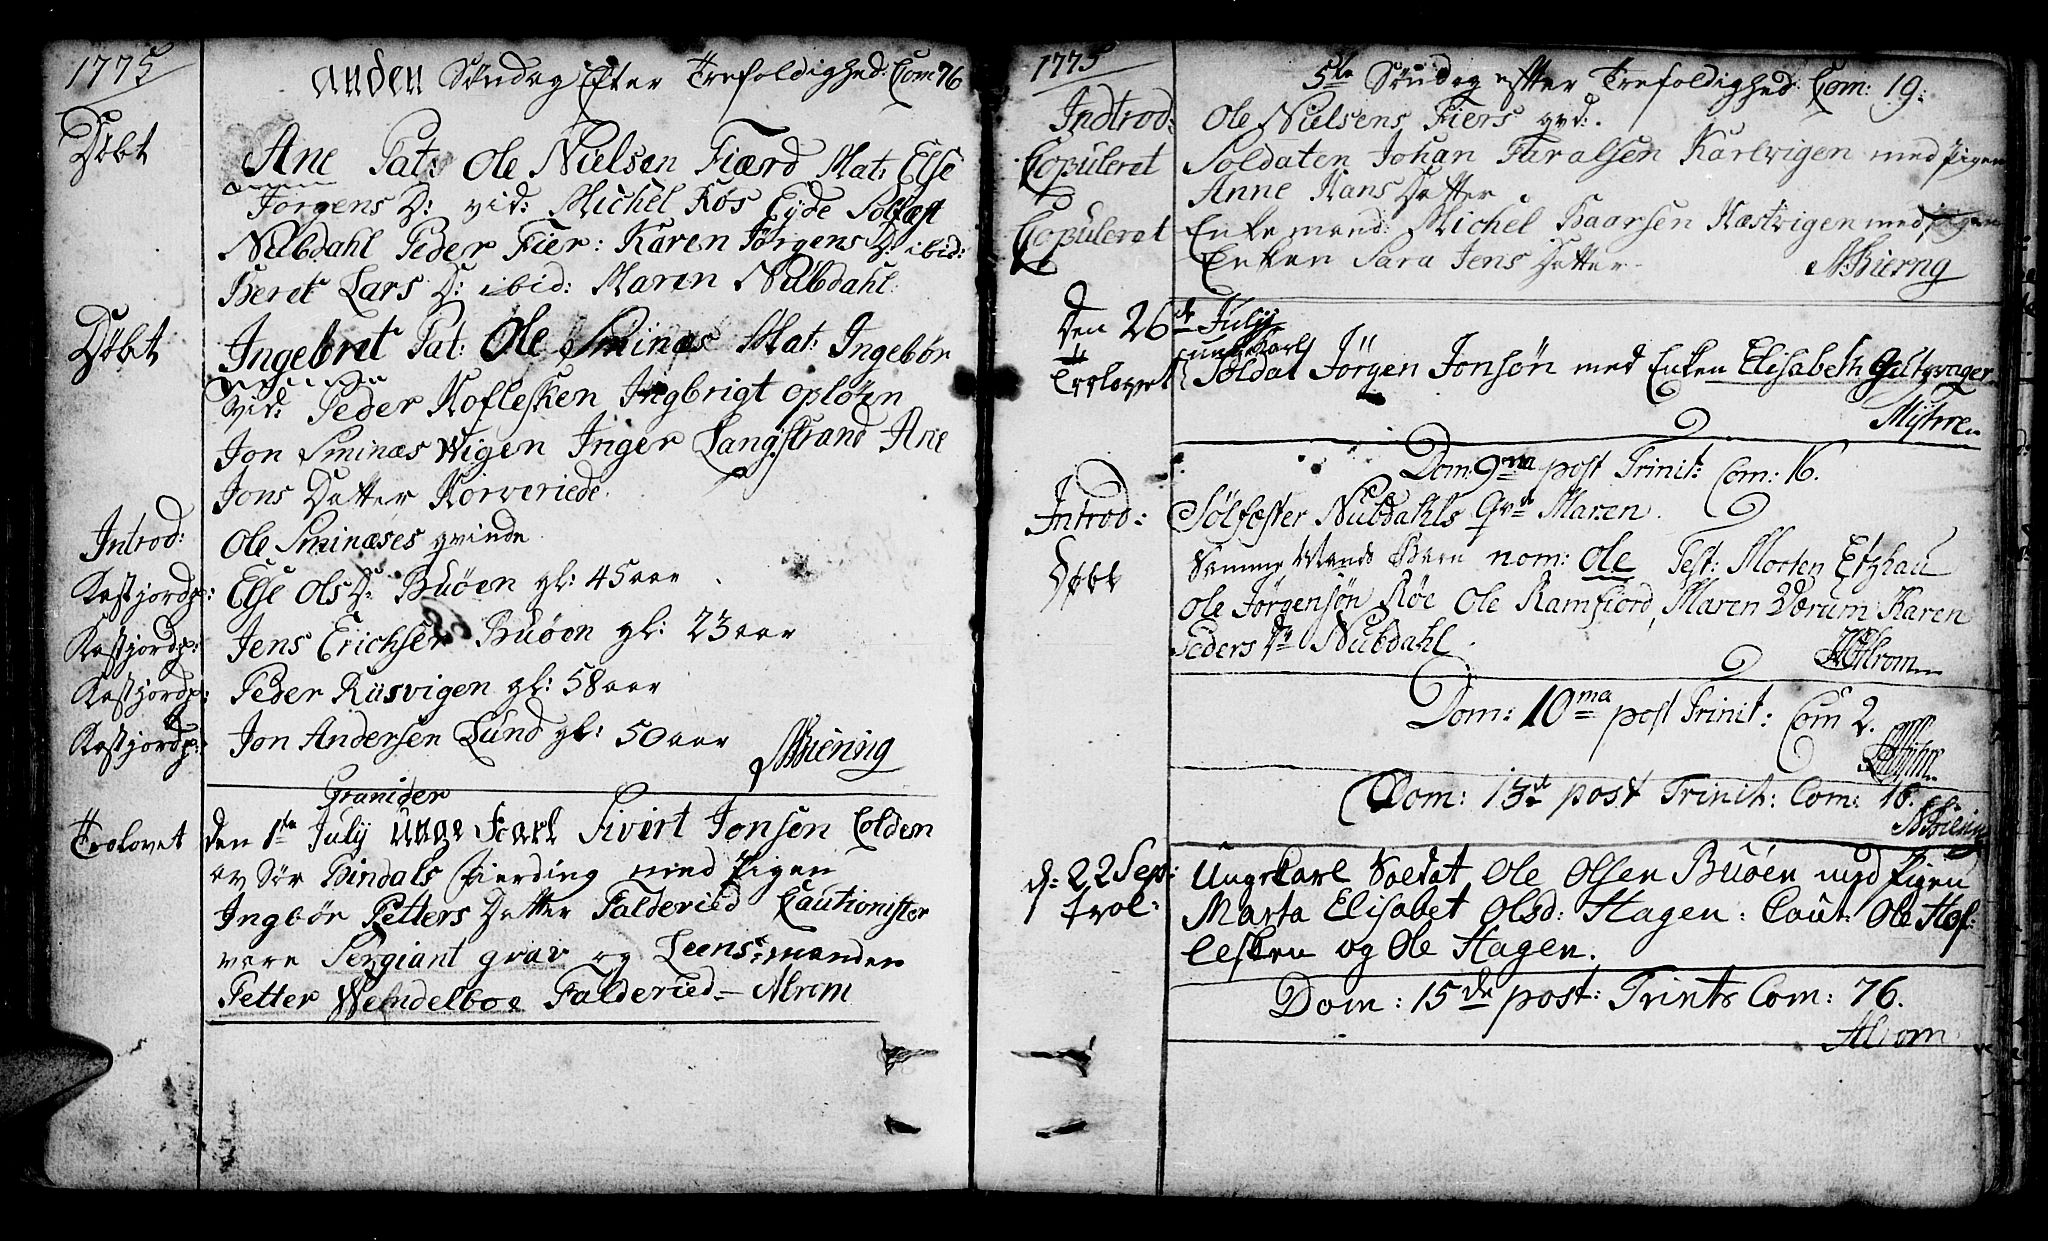 1775
anden Søndag Efter Trefoldighed: Com 76
Døbt
Ane Pat: Ole Nielsen Fiærd Mat: Else
Jørgens D: vid: Michel Røs Eyde Solfæst
Nubdahl Peder Fier: Karen Jørgens D: ibid:
Beret Lars D: ibid: Maren Nubdahl.
Døbt
Ingebret Pat: Ole Sminæs Mat: Ingebør
vid: Peder Hoflesken Ingbrigt Opløen
Jon Sminæs Wigen Inger Langstrand Ane
Jons Datter Horveriede.
Introd:
Ole Sminæses qvinde
Kastjordp: Else Ols D: Buøen gl: 45 aar
Kastjordp: Jens Erichsen Buøen gl: 23 aar
Kastjordp: Peder Rusvigen gl: 58 aar
Kastjordp: Jon Andersen Lund gl: 50 aar
Granider
Trolovet den 1te July unge Karl Sivert Jonsen Colden
av Sør Bindals fierding med Pigen
Ingbør Petters Datter Falderied Cautionister
vare Sergiant grav og Leens:manden
Petter Wendelboe Falderied Alrom
1775
5te Søndag efter Trefoldighed Com: 19:
Indtrod: Ole Nielsens Fiers qvd:
Copuleret Soldaten Johan Haralsen Karlvigen med pigen
Anne Hans Datter
Copuleret Enke mand: Michel Haarsen Næstvigen med
Enken Sara Jens Datter
Den 26de July
ung Karl
Trolovet Soldat Jörgen Jonsön med Enken Elisabeth
Dom: 9na post Trinit: Com: 16.
Introd: Sölfester Nubdahls Qvde Maren
Döbt Samme Mands Barn nom: Ole Test: Morten Etzhau
Ole Jörgensön Röe Ole Ramfiord, Maren Værum Karen
Peders Dr Nubdahl
Alrom
Dom: 10ma post Trinit: Com 2.
Dom: 13de post Trinit: Com: 16.
d: 22 Sep: Ungekarl Soldat Ole Olsen Buöen med Pigen
trol: Marta Elisabet Olsd: Hagen: Caut: Ole Hof:
lesken og Ole Hagen.
Dom: 15de post: Trinits Com: 76.
Alrom